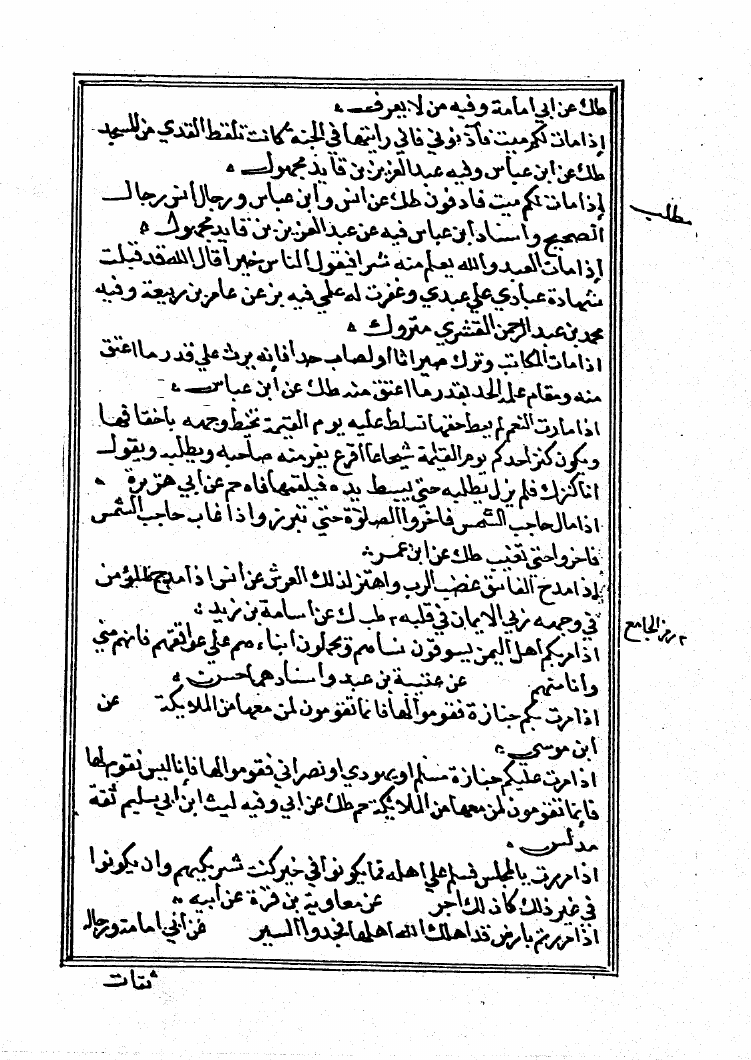 طك عن ابي امامة وفيه من لا يعرف
إذا مات لكم ميت فآذنوني فاني رايتها في الجنة كانت تلقط القذي من المسجد
طك عن ابن عباس وفيه عبد العزيز بن قايد مجهول
إذا مات لكم ميت فادفون طك عن انس وابن عباس ورجال انس رجال
الصحيح واسناد ابن عباس فيه عن عبد العزيز بن قايد مجهول
إذا مات العبد والله يعلم منه شرا فيقول الناس خيرا قال الله قد قبلت
شهادة عبادي علي عبدي وغفرت له علي فيه بز عن عامر بن ربيعة وفيه
محمد بن عبد الرحمن القشري متروك
اذا مات المكاتب وترك ميراثا أو لصاب حدا فإنه يرث علي قدر ما اعتق
منه ومقام عليه الحد بقدر ما اعتق منه طك عن ابن عباس
اذا مارت النعم لم يعط حقها تسلط عليه يوم القيمة تخبط وجهه باخفافها
ويكون كنز احدكم يوم القيامة شجاعا اقرع يفر منه صاحبه ويطلبه ويقول
انا كنزك فلم يزل يطلبه حتي يبسط يده فيلقمها فاه حم عن ابي هريرة
اذا مال حاجب الشمس فاخروا الصلاة حتي تبرز واذا غاب حاجب الشمس
فاخروا حتي تغيب طك عن ابن عمر
إذا مدح الفاسق غضب الرب واهتز لذلك العرش عن انس اذا مدح المؤمن
في وجهه ربي الايمان في قلبه طب ك عن اسامة بن زيد
اذا مر بكم اهل اليمن يسوقون نساهم ويحملون ابناءهم علي عواتقهم فانهم مني
وانا منهم عن عتبة بن عبد واسنادهما حسن
اذا مرت بكم جنازة فقوموا لها فانما تقومون لمن معها من الملايكة عن
ابن موسي
اذا مرت عليكم جنازة مسلم او يهودي او نصراني فقوموا لها فإنا ليس نقوم لها
فإنما تقومون لمن معها من الملايكة حم طك عن ابي وفيه ليث ابن ابي سليم ثقة
مدلس
اذا مررت بالمجلس فسلم علي اهله فما يكونوا في خير كنت شريكهم وان يكونوا
في غير ذلك كان لك اجر عن معاوية بن قرة عن ابيه
اذا مررتم بارض قد اهلك الله اهلها فجدوا السير عن ابي امامة ورجاله
ثقات
مطلب
رمز الجامع